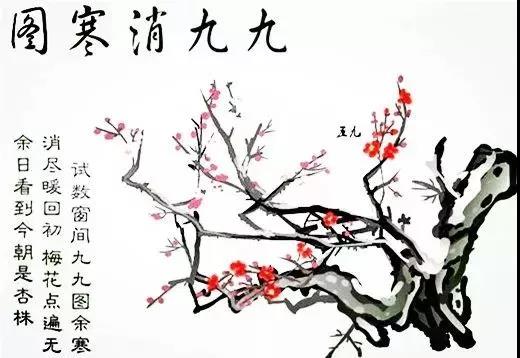 九九消寒图
五九
试数窗间九九图余寒
消尽暖回初 梅花点遍无
余日看到今朝是杏株